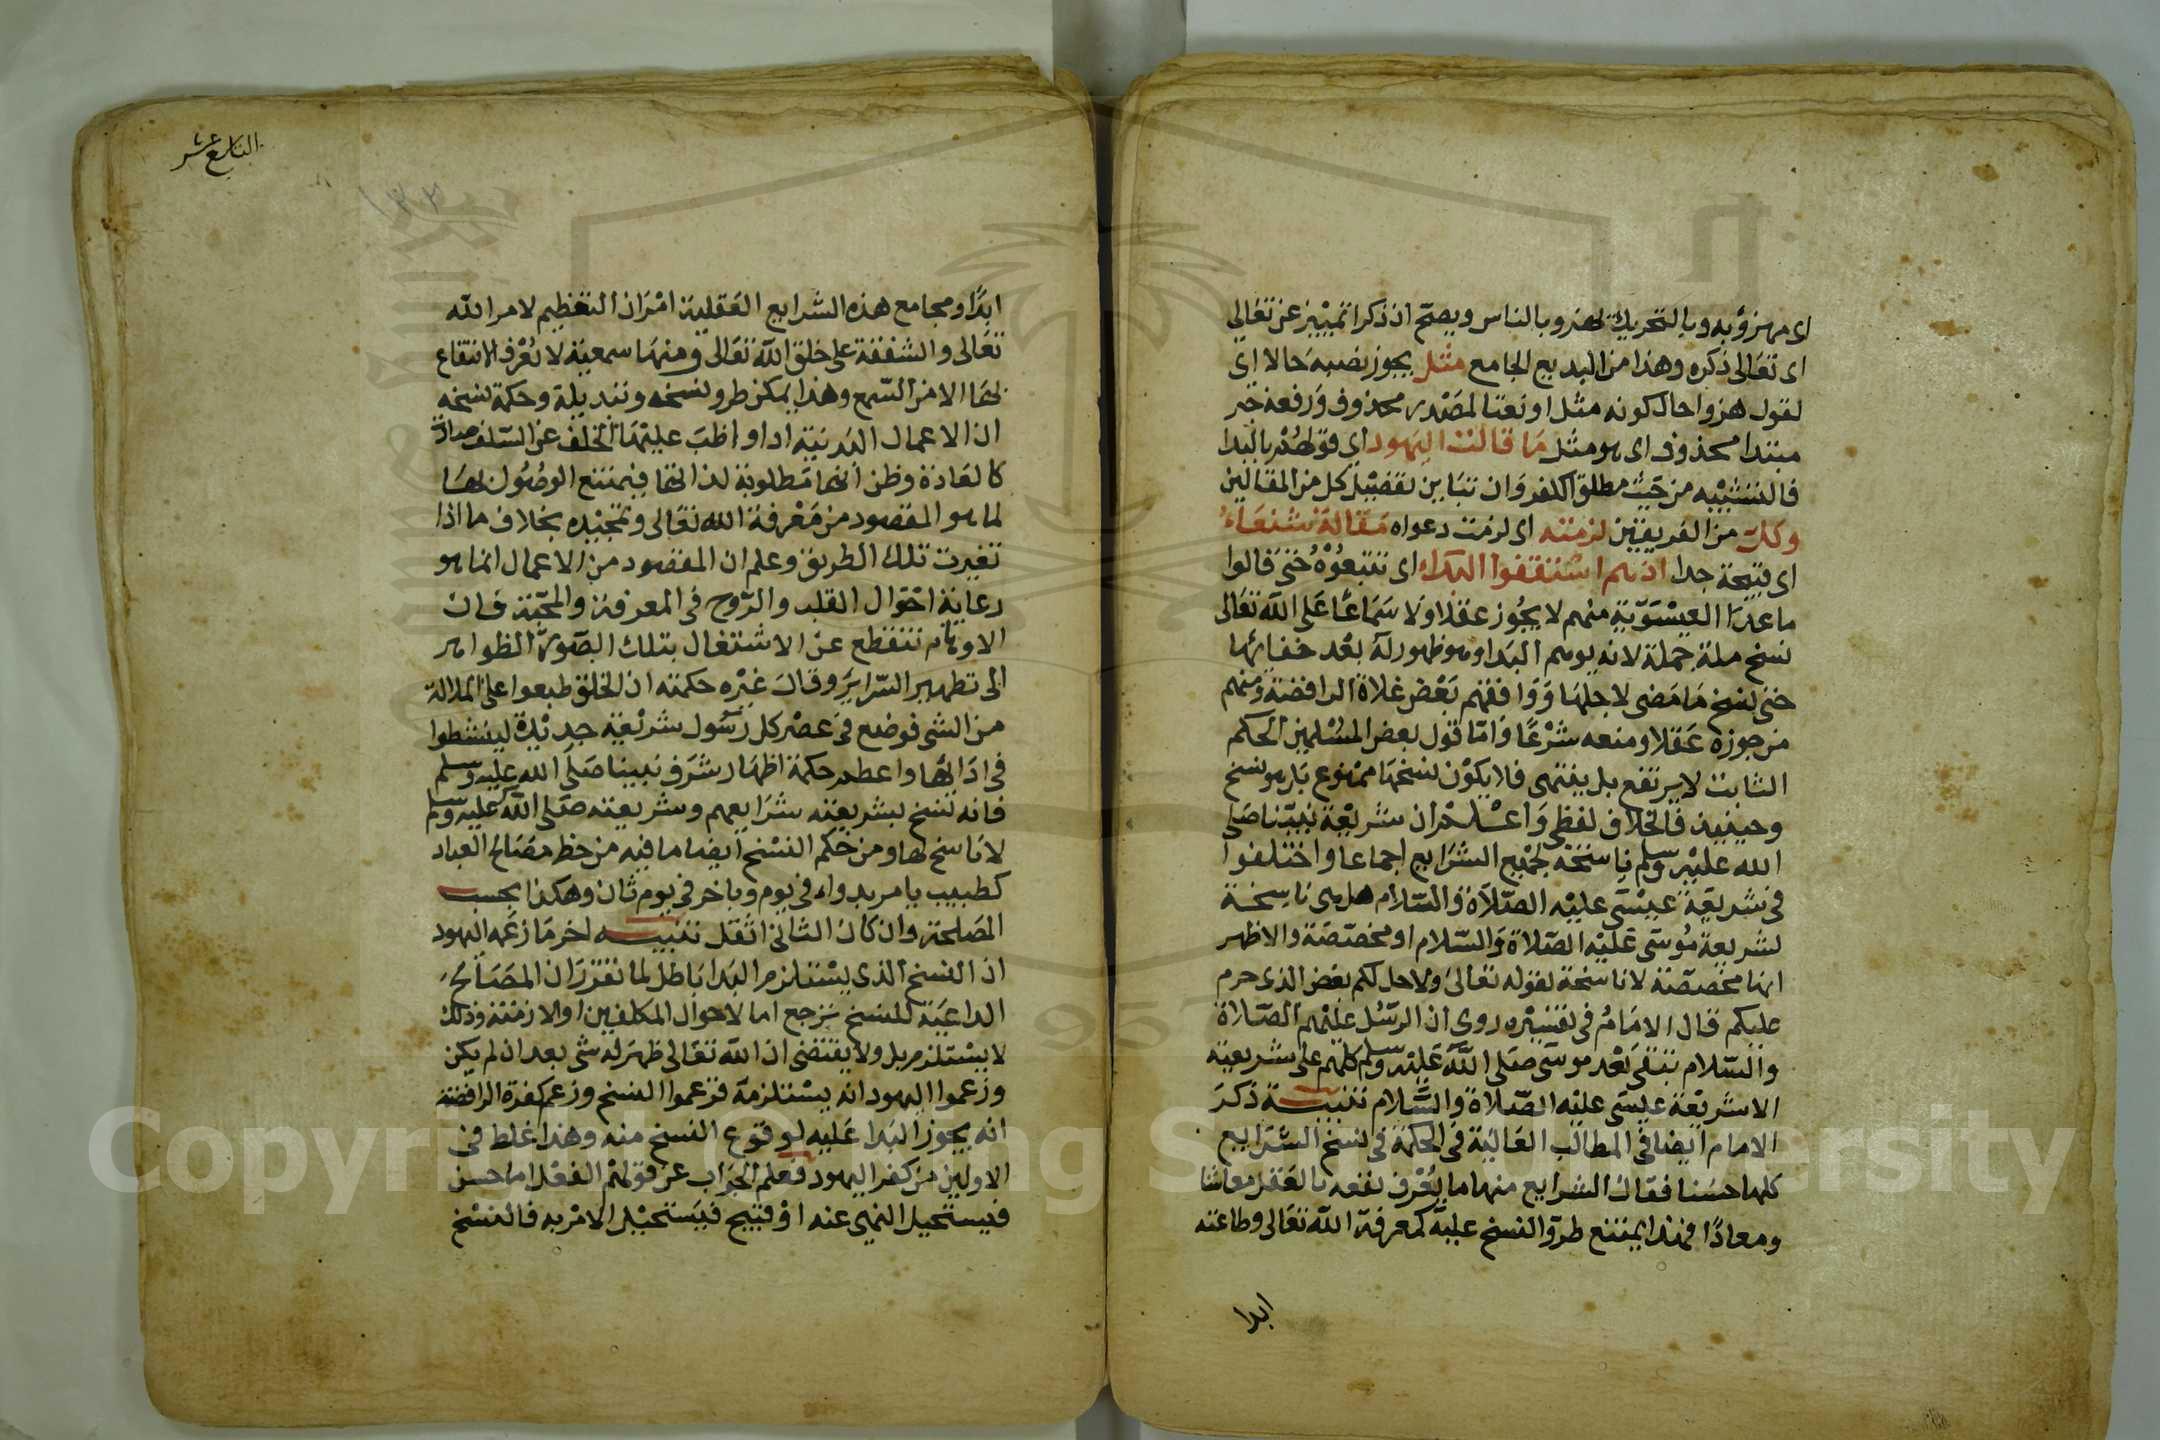 اى مهزؤ به وبالتحريك لهزو بالناس ويصح ان ذكرا تمييز عن تعالى
اى تعالى ذكره وهذا من البديع الجامع مثل يجوز نصبه حالا اى
لقول هزوا حال كونه مثل او نعتا لمصدر محذوف ورفعه خبر
مبتدا محذوف اى هو مثل ما قالت اليهود اى قولهم بالبدا
فالتشبيه من حيث مطلق الكفر وان تباين تفضيل كل من المقالين
وكل من الفريقين لزمته اى لزمت دعواه مقالة شنعاء
اى قبيحة جدا اذ هم استقفوا البداء اى تتبعوه حتى قالوا
ما عدا العيسوية منهم لا يجوز عقلا ولا سماعا على الله تعالى
نسخ ملة جملة لانه يوهم البدا وهو ظهور له بعد خفائها
حتى نسخ ما مضى لاجلها ووافقهم بعض غلاة الرافضة ومنهم
من جوزه عقلا ومنعه شرعا واما قول بعض المسلمين الحكم
الثابت لا يرتفع بل ينتهى فلا يكون نسخها ممنوع بل هو نسخ
وحينيذ فالخلاف لفظى واعلم ان شريعة نبينا صلى
الله عليه وسلم ناسخة لجميع الشرايع اجماعا واختلفوا
فى شريعة عيسى عليه الصلاة والسلام هل هى ناسخة
لشريعة موسى عليه الصلاة والسلام او مخصصة والاظهر
انها مخصصة لا ناسخة لقوله تعالى ولاحل لكم بعض الذى حرم
عليكم قال الامام فى تفسيره روى ان الرسل عليهم الصلاة
والسلام تبقى بعد موسى صلى الله عليه وسلم كلهم على شريعته
الا شريعة عيسى عليه الصلاة والسلام تنبيه ذكر
الامام ايضا فى المطالب العالية فى الحكمة فى نسخ الشرايع
كلها حسنا فقال الشرايع منها ما يعرف نفعه بالعقل معاشا
ومعادا فهذا يمتنع طرو النسخ عليه كمعرفة الله تعالى وطاعته
ابدا
التاسع عشر
١٣٣
ابدا ومجامع هذه الشرايع العقلية امران التعظيم لامر الله
تعالى والشفقة على خلق الله تعالى ومنها سمعية لا يعرف الانتفاع
بها الا من السمع وهذا يمكن طرو نسخه وتبديله وحكمة نسخه
ان الاعمال البدنية اذا واظب عليها الخلف عن السلف صارت
كالعادة وظن انها مطلوبة لذاتها فيمتنع الوصول بها
لما هو المقصود من معرفة الله تعالى وتمجيده بخلاف ما اذا
تغيرت تلك الطريق وعلم ان المقصود من الاعمال انما هو
رعاية احوال القلب والروح فى المعرفة والمحبة فان
الاوهام تنقطع عن الاشتغال بتلك الصور الظواهر
الى تطهير السراير وقال غيره حكمته ان الخلق طبعوا على الملالة
من الشى فوضع فى عصر كل رسول شريعة جديدة لينشطوا
فى ادائها واعظم حكمة اظهار شرف نبينا صلى الله عليه وسلم
فانه نسخ بشريعته شرايعهم وشريعته صلى الله عليه وسلم
لا ناسخ لها ومن حكم النسخ ايضا ما فيه من حظ مصالح العباد
كطبيب يامر بدواء فى يوم وباخر فى يوم ثان وهكذا بحسب
المصلحة وان كان الثانى اثقل تنبيه اخر ما زعمه اليهود
ان النسخ الذى يستلزم البدا باطل لما تقرر ان المصالح
الداعية للنسخ ترجع اما لاحوال المكلفين او الازمنة وذلك
لا يستلزم بل ولا يقتضى ان الله تعالى ظهر له شى بعد ان لم يكن
وزعموا اليهود انه يستلزمه فزعموا النسخ وزعم كفرة الرافضة
انه يجوز البدا عليه لو قوع النسخ منه وهذا غلط فى
الاولين من كفر اليهود فعلم الجواب عن قولهم الفعل اما حسن
فيستحيل النهى عنه او قبيح فيستحيل الامر به فالنسخ
Copyright © King Saud University
1957